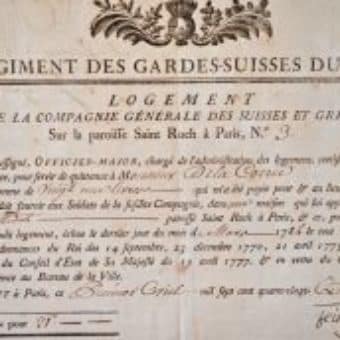 GIMENT DES GARDES-SUISSES DU
LOGEMENT
E LA COMPAGNIE GÉNÉRALE DES SUISSES ET GRI
Sur la paroisse Saint Roch à Paris, N.º 3.
ssigné, OFFICIER-MAJOR, chargé de l'administration des logemens, certifie
pour servir de quittance à Monsieur De la
omme de Vingt un livres qui m'a été payée pour & au lieu
oit fournir aux Soldats de la susdite Compagnie, dans maison qui lui app
paroisse Saint Roch à Paris, & ce, pou
dudit logement, échue le dernier jour du mois de Mars 1786 le tout
donnances du Roi des 14 septembre, 23 décembre 1770, 21 avril 1777
du Conseil d'État de Sa Majesté du 19 avril 1777. & en
ence au Bureau de la Ville.
T à Paris, ce Premier Avril mil sept cent quatre-vingt-
pour 21